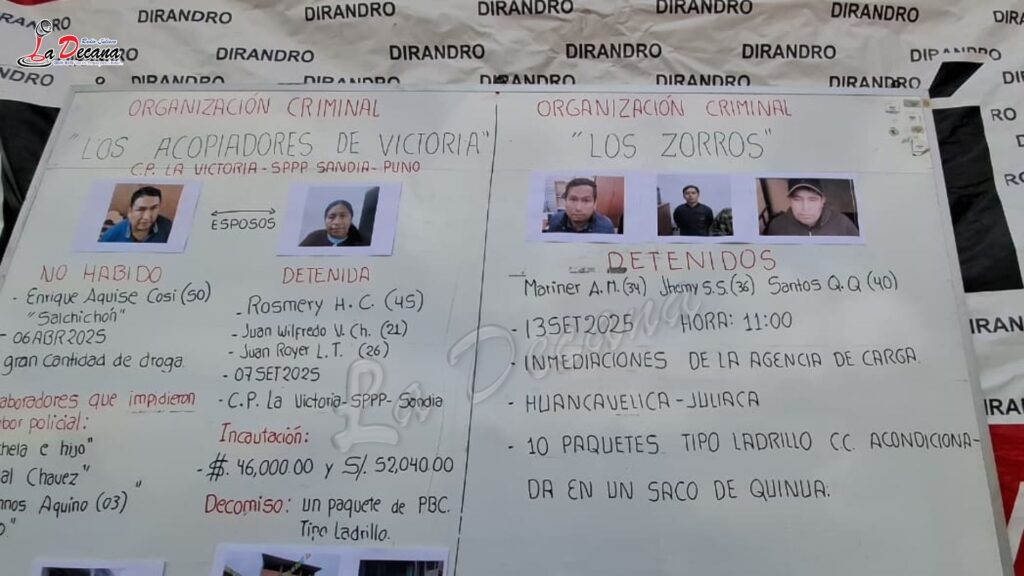 DIRANDRO DIRANDRO DIRANDRO DIRANDRO DIRANDRO
Radio Juliaca
La Decana
DIRANDRO DIRANDRO DIRANDRO DIRANDRO DIRANDRO
DIRANDRO DIRANDRO DIRANDRO DIRANDRO
ORGANIZACIÓN CRIMINAL
"LOS ACOPIADORES DE VICTORIA"
C.P. LA VICTORIA-SPPP SANDIA-PUNO
ESPOSOS
NO HABIDO
- Enrique Aquise Cosi (50)
"Salchichón"
- 06 ABR 2025
gran cantidad de droga.
aboradores que impidieron
abor policial:
chela e hijo"
al Chavez"
nnos Aquino (03)
DETENIDA
- Rosmery H. C. (45)
- Juan Wilfredo V. Ch. (21)
- Juan Royer L. T. (26)
- 07 SET 2025
- C.P. La Victoria-SPPP-Sandia
Incautación:
- $. 46,000.00 y S/. 52,040.00
Decomiso: un paquete de PBC.
Tipo Ladrillo.
ORGANIZACIÓN CRIMINAL
"LOS ZORROS"
DETENIDOS
Mariner A.M. (34) Jhomy S.S. (36) Santos Q.Q (40)
- 13 SET 2025 HORA: 11:00
- INMEDIACIONES DE LA AGENCIA DE CARGA.
- HUANCAVELICA - JULIACA
- 10 PAQUETES TIPO LADRILLO CC. ACONDICIONA-
DA EN UN SACO DE QUINUA.
La Decana
RO
DIRA
RO
IRAN
DIRA
IRAN